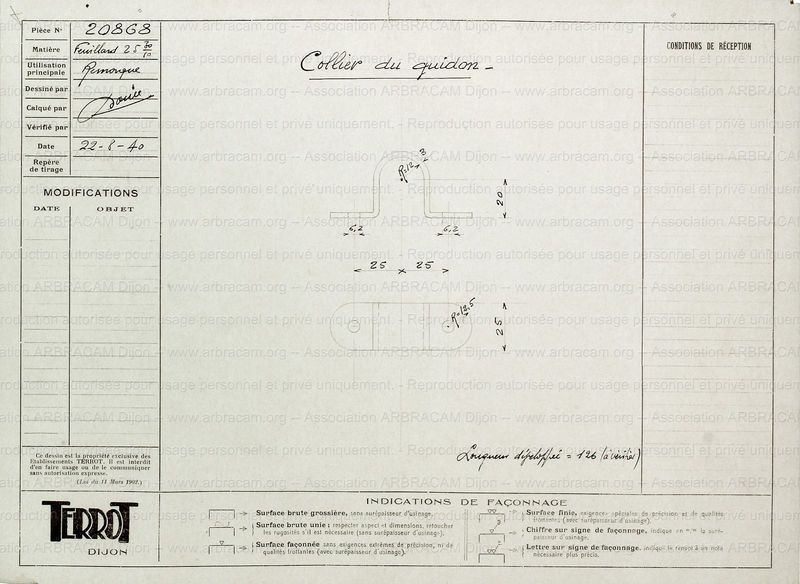 Pièce N° 20868
Matière Feuillard 25 30/10
Utilisation principale Remorque
Dessiné par
Calqué par
Vérifié par
Date 22-8-40
Repère de tirage
MODIFICATIONS
DATE OBJET
Collier du guidon_
CONDITIONS DE RÉCEPTION
R=12
3
20
6,2 6,2
25 25
R=12,5
25
Longueur développée = 126 (à vérifier)
Ce dessin est la propriété exclusive des
Etablissements TERROT. Il est interdit
d'en faire usage ou de le communiquer
sans autorisation expresse.
(Loi du 11 Mars 1902.)
TERROT
DIJON
INDICATIONS DE FAÇONNAGE
Surface brute grossière, sans surépaisseur d'usinage.
Surface brute unie; respecter aspect et dimensions, retoucher
les rugosités s'il est nécessaire (sans surépaisseur d'usinage).
Surface façonnée sans exigences extrêmes de précision, ni de
qualités frottantes (avec surépaisseur d'usinage).
Surface finie, exigences spéciales de précision et de qualités
frottantes (avec surépaisseur d'usinage).
Chiffre sur signe de façonnage, indique en "/" la suré-
paisseur d'usinage.
Lettre sur signe de façonnage, indique le renvoi à un note
nécessaire plus précis.
www.arbracam.org – Association ARBRACAM Dijon – Reproduction autorisée pour usage personnel et privé uniquement.